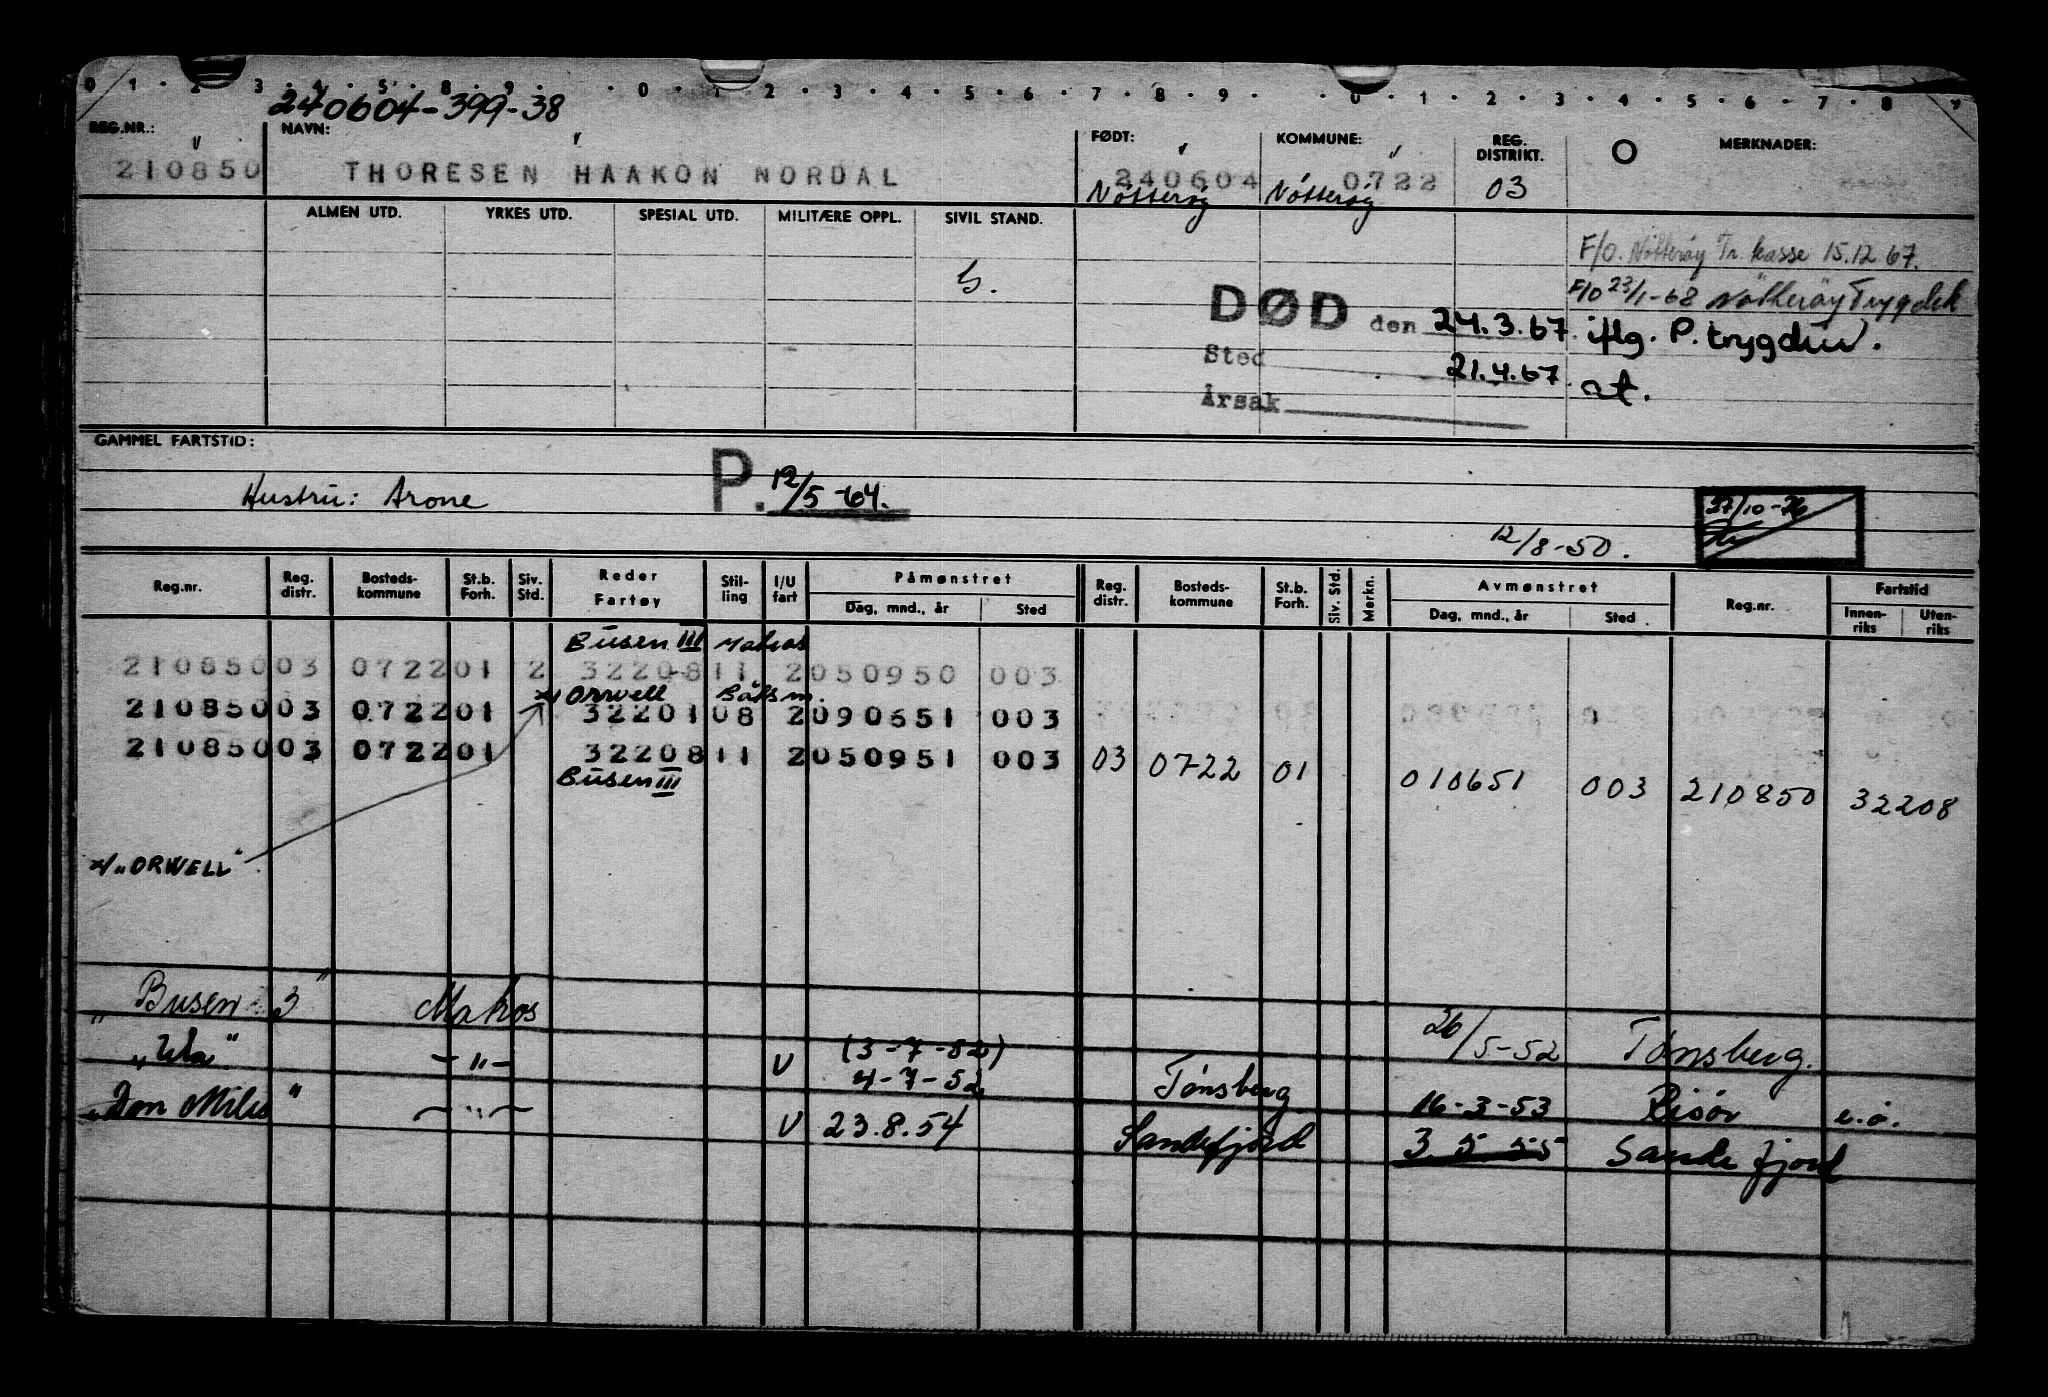 0 1 2 3 4 5 8 9 0 1 2 3 4 5 6 7 8 9 0 1 2 3 4 5 6 7 8 9
240604-399-38
REG.NR.: NAVN: FØDT: KOMMUNE: REG. DISTRIKT. MERKNADER:
210850 THORESEN HAAKON NORDAL 240604 0722 03
Nötteröy Nötteröy
ALMEN UTD. YRKES UTD. SPESIAL UTD. MILITÆRE OPPL. SIVIL STAND.
F/O. Nötteröy Tr. kasse 15.12.67.
G.
F/O 23/1-68 Nötteröy Trygdek
DØD den 24.3.67 iflg. P. trygden.
Sted 21.4.67 at.
Årsak
GAMMEL FARTSTID:
Hustru: Arone P. 12/5-64.
27/10-76
12/8-50.
Reg.nr. Reg. distr. Bosteds-kommune St.b. Forh. Siv. Std. Reder Fartøy Stil-ling I/U fart Påmønstret Reg. distr. Bosteds-kommune St.b. Forh. Siv. Std. Merkn. Avmønstret Reg.nr. Fartstid
Dag, mnd., år Sted Dag, mnd., år Sted Innen-riks Uten-riks
Busen III Matros
210850 03 0722 01 2 32208 11 2 050950 003
x/ Orwell Båtsm.
210850 03 0722 01 32201 08 2 090651 003
210850 03 0722 01 32208 11 2 050951 003 03 0722 01 010651 003 210850 32208
Busen III
x/ "ORWELL"
"Busen 3" Matros 26/5-52 Tønsberg.
"Ula" -"- U (3-7-52)
4-7-52 Tønsberg 16-3-53 Risør e.o.
"Don Miles" -"- U 23.8.54 Sandefjord 3.5.55 Sandefjord